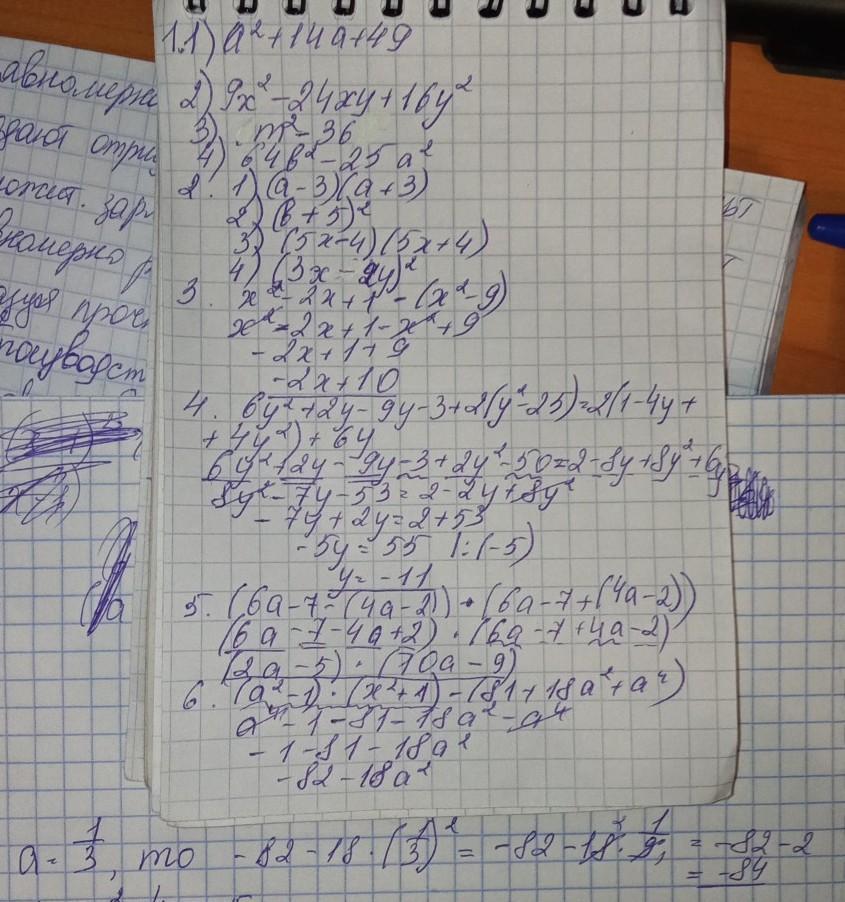 1.1) a² + 14a + 49
2) 9x² - 24xy + 16y²
3) m² - 36
4) 64b² - 25a²
2. 1) (a - 3)(a + 3)
2) (b + 5)²
3) (5x - 4)(5x + 4)
4) (3x - 2y)²
3. x² - 2x + 1 - (x² - 9)
x² - 2x + 1 - x² + 9
- 2x + 1 + 9
- 2x + 10
4. 6y² + 2y - 9y - 3 + 2(y² - 25) = 2(1 - 4y +
+ 4y²) + 6y
6y² + 2y - 9y - 3 + 2y² - 50 = 2 - 8y + 8y² + 6y
8y² - 7y - 53 = 2 - 2y + 8y²
- 7y + 2y = 2 + 53
- 5y = 55 |:(-5)
y = - 11
5. (6a - 7 - (4a - 2)) · (6a - 7 + (4a - 2))
(6a - 7 - 4a + 2) · (6a - 7 + 4a - 2)
(2a - 5) · (10a - 9)
6. (a² - 1) · (x² + 1) - (81 + 18a² + a⁴)
a⁴ - 1 - 81 - 18a² - a⁴
- 1 - 81 - 18a²
- 82 - 18a²
a = 1/3, то - 82 - 18 · (1/3)² = - 82 - 18 · 1/9 = - 82 - 2
= - 84